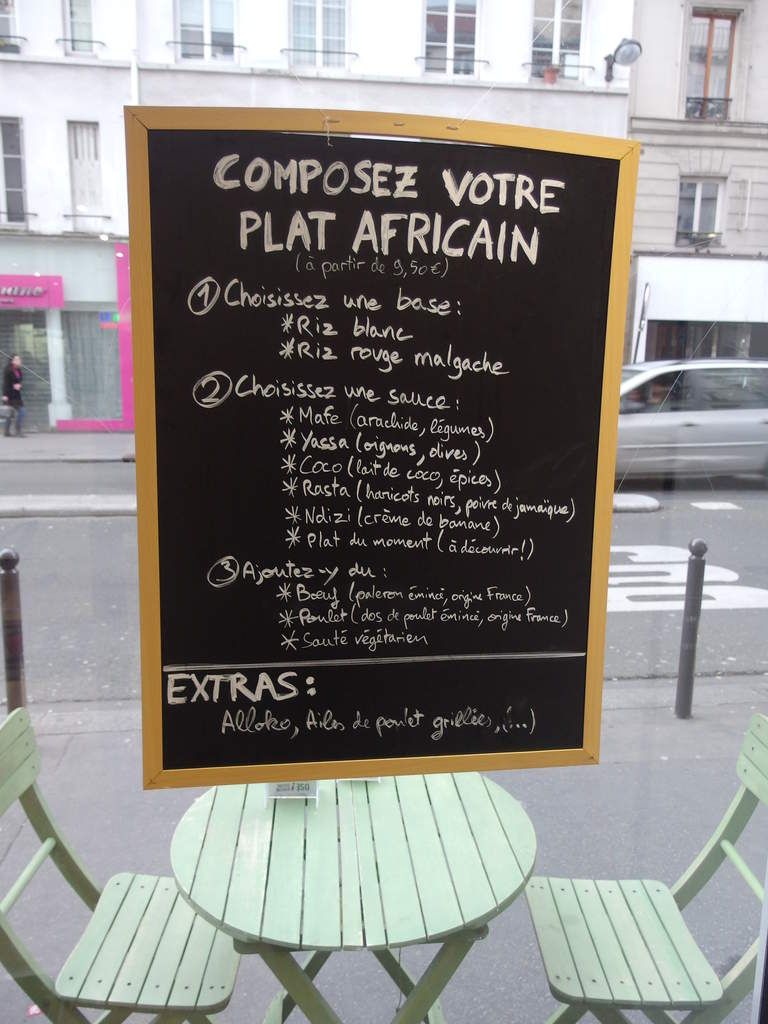 COMPOSEZ VOTRE
PLAT AFRICAIN
(à partir de 9,50€)
① Choisissez une base :
* Riz blanc
* Riz rouge malgache
② Choisissez une sauce :
* Mafe (arachide, légumes)
* Yassa (oignons, olives)
* Coco (lait de coco, épices)
* Rasta (haricots noirs, poivre de jamaïque)
* Ndizi (crème de banane)
* Plat du moment (à découvrir!)
③ Ajoutez-y du :
* Bœuf (paleron émincé, origine France)
* Poulet (dos de poulet émincé, origine France)
* Sauté végétarien
EXTRAS :
Alloko, Ailes de poulet grillées, (...)